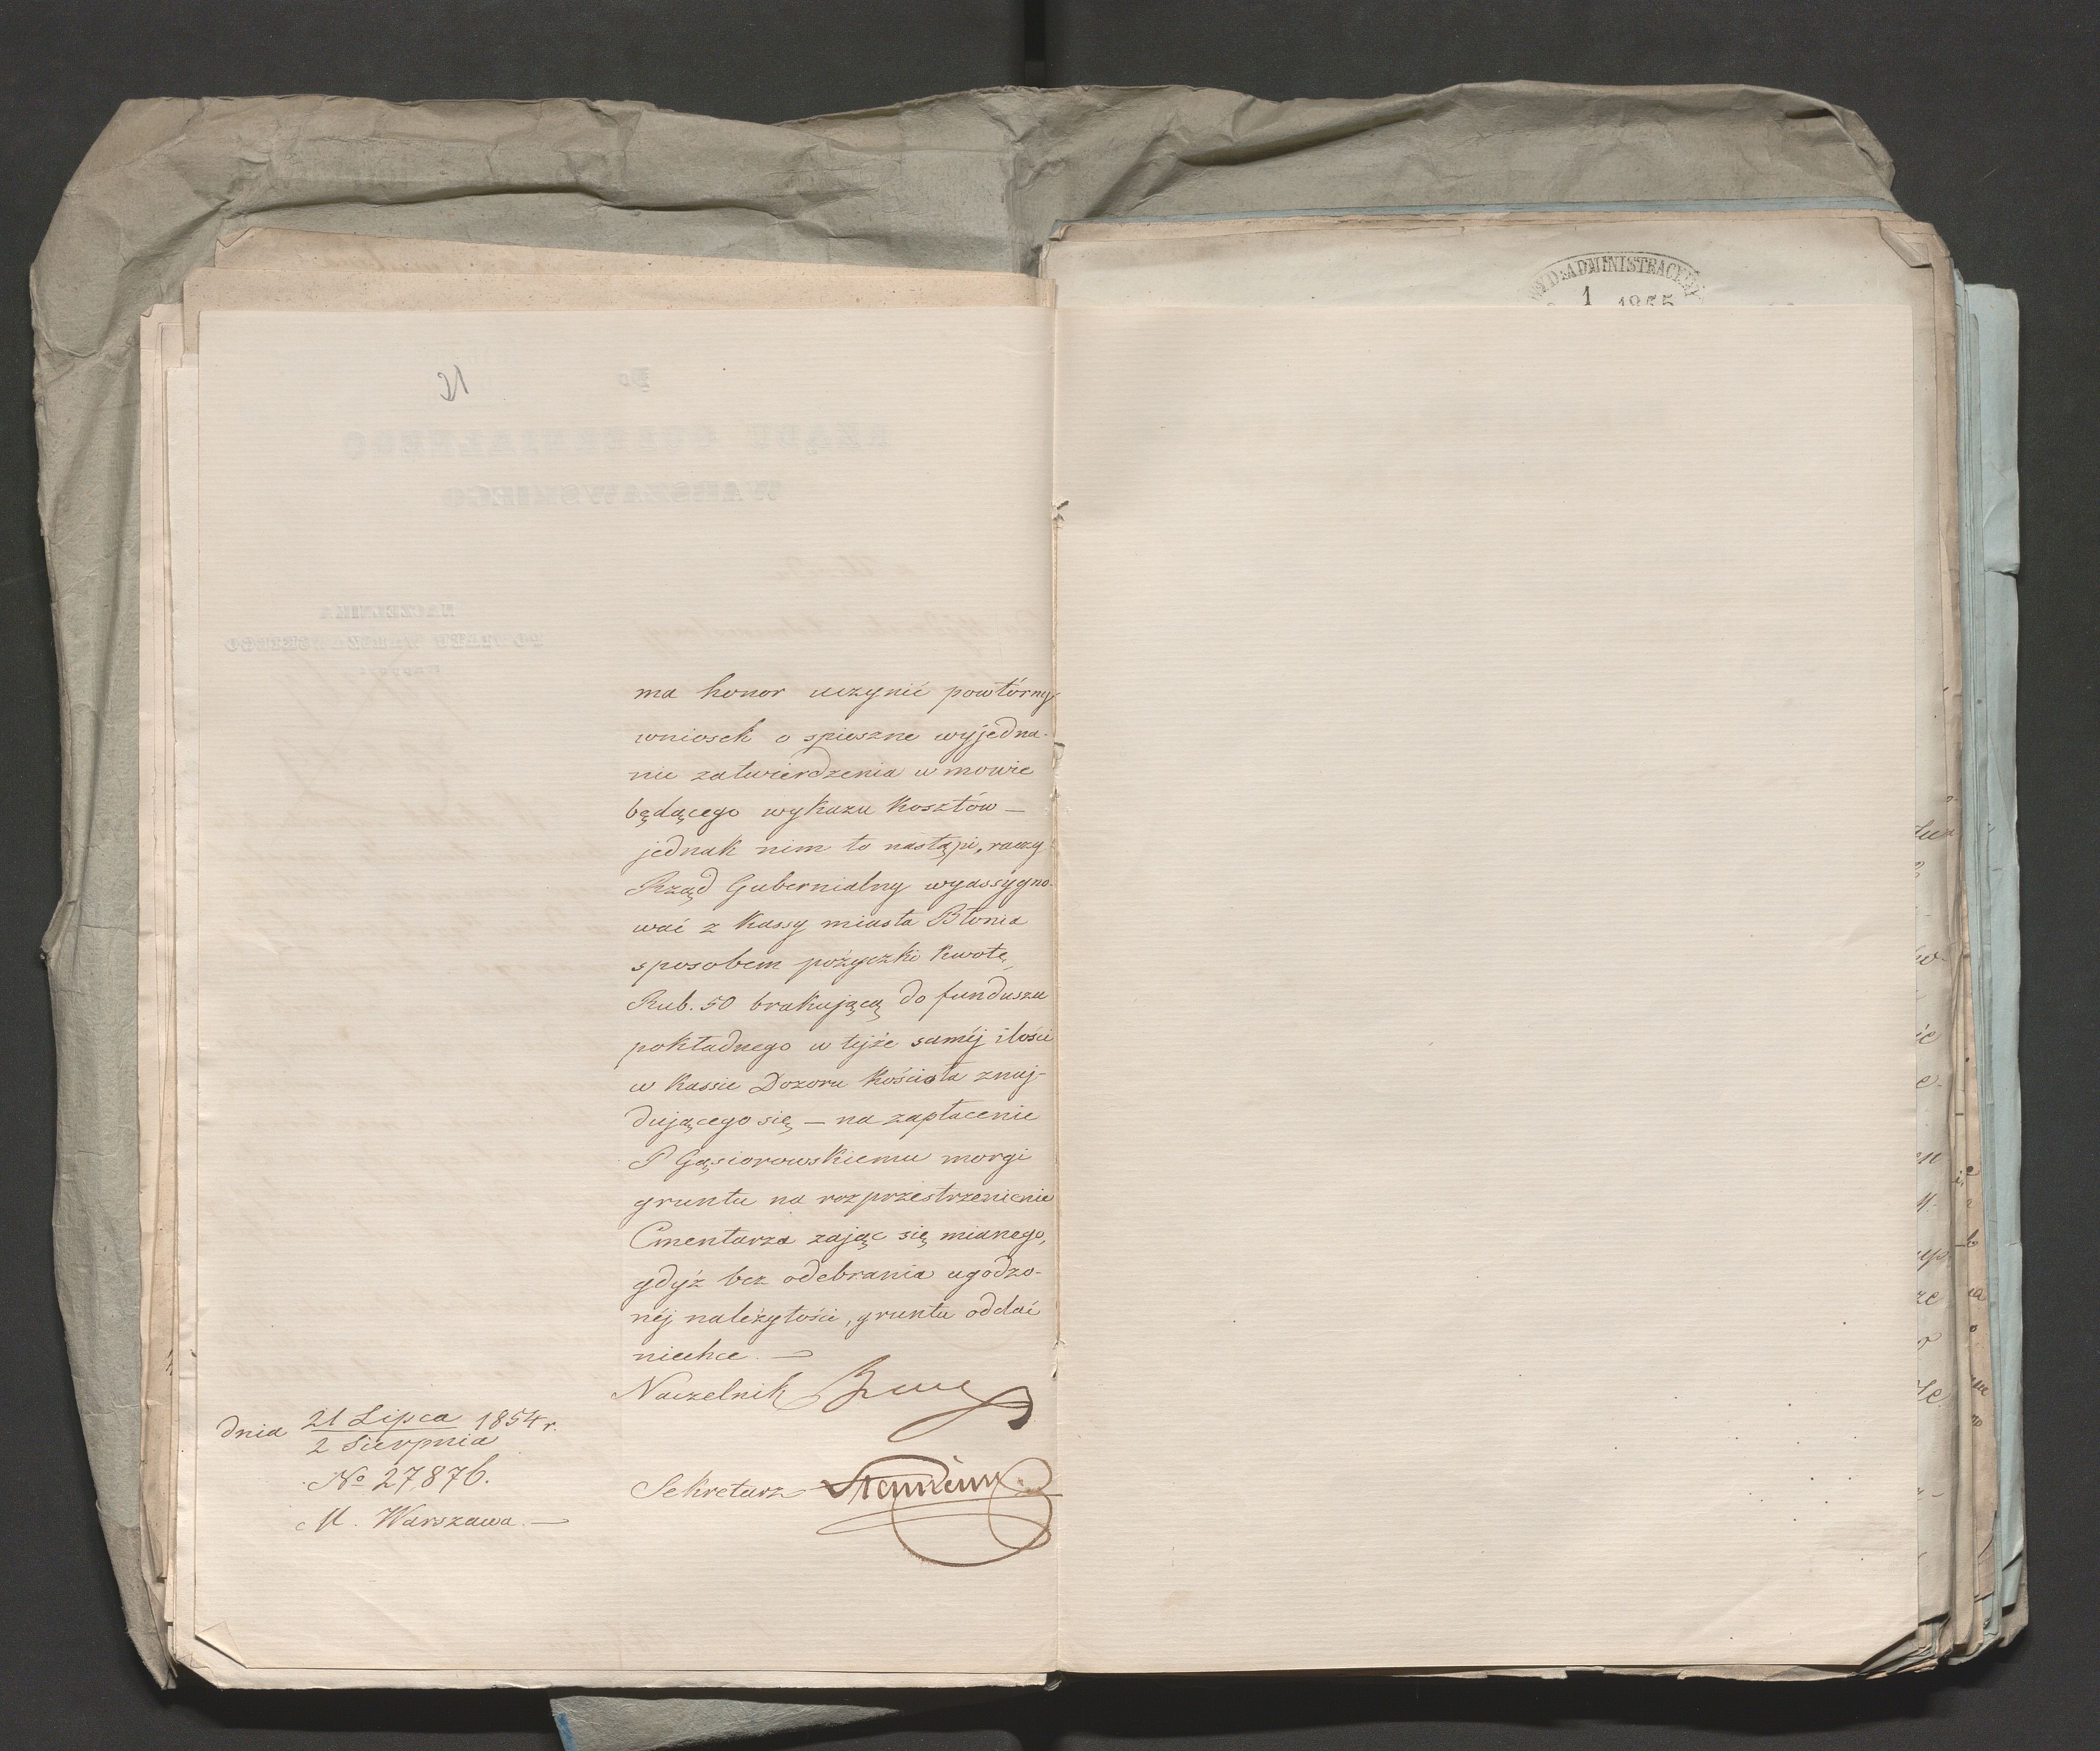 WYD: ADMINISTRACYJNY
1 1855
ma honor uczynić powtórny
wniosek o spieszne wyjedna-
nie zatwierdzenia w mowie
będącego wykazu kosztów —
jednak nim to nastąpi, raczy
Rząd Gubernialny wyassygno-
wać z Kassy miasta Błonia
sposobem pożyczki kwotę
Rub. 50 brakującą do funduszu
pokładnego w tejże saméj ilości
w Kassie Dozoru Kościoła znaj-
dującego się — na zapłacenie
P Gąsiorowskiemu morgi
gruntu na rozprzestrzenienie
Cmentarza zając się mianego,
gdyż bez odebrania ugodzo-
néj należytości, gruntu oddać
niechce. —
Naczelnik
dnia 21 Lipca 1854 r.
2 Sierpnia
No 27,876.
M. Warszawa. —
Sekretarz